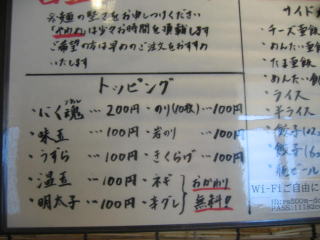 ※麺の堅さをお申しつけください
「やわめ」は少々お時間を頂戴します
ご希望の方は早めのご注文をおすすめ
いたします
トッピング
・にく魂 … 200円 ・のり(10枚) … 100円
・味玉 … 100円 ・岩のり … 100円
・うずら … 100円 ・きくらげ … 100円
・温玉 … 100円 ・ネギ おかわり
・明太子 … 100円 ・辛グレ 無料!!
サイド
・チーズ
・めんたい
・たま
・めんたい
・ライス
・半ライス
・餃子
・餃子
Wi-Fiご自由に